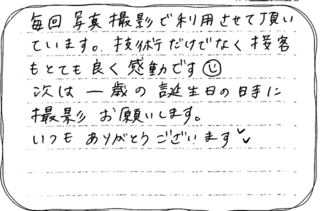 毎回写真撮影で利用させて頂い
ています。技術だけでなく接客
もとても良く感動です
次は一歳の誕生日の時に
撮影お願いします。
いつもありがとうございます